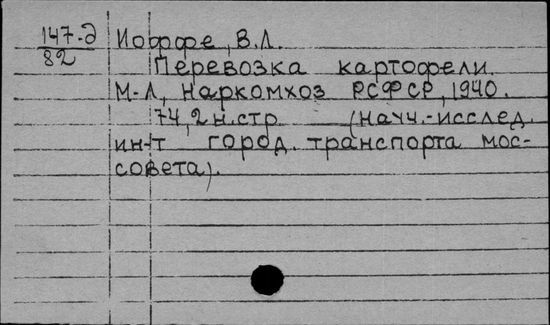 147-д Иоффе, В.Л.
82
Перевозка картофели.
М-Л, Наркомхоз РСФСР, 1940.
74, 2 н.стр. (Науч.-исслед.
ин-т город. транспорта Мос-
совета).